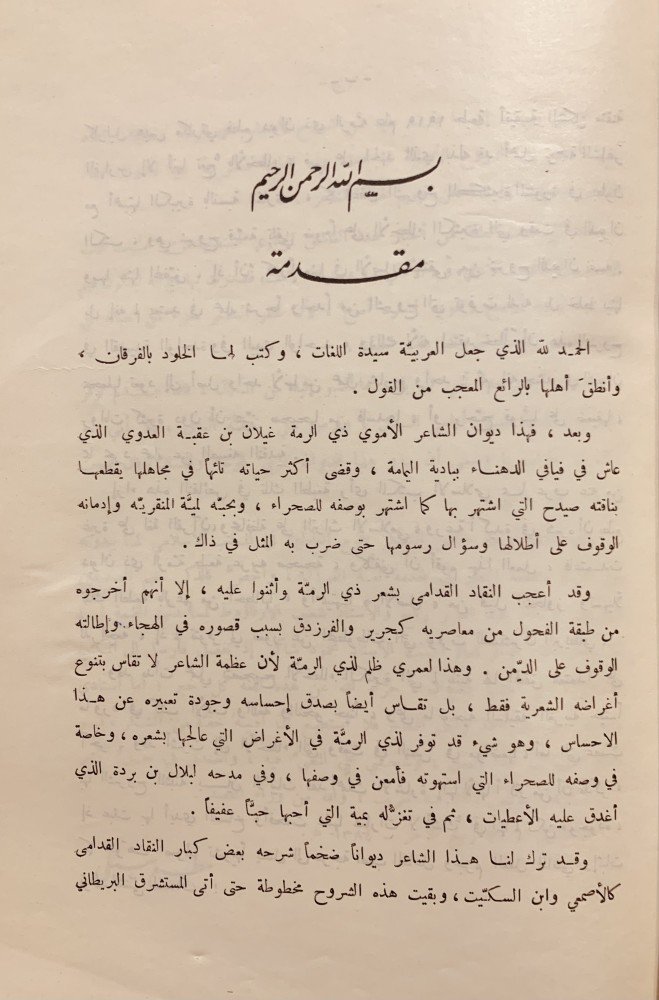 بسم الله الرحمن الرحيم
مقدمة
الحمد لله الذي جعل العربيّة سيدة اللغات ، وكتب لها الخلود بالفرقان ،
وأنطقَ أهلها بالرائع المعجب من القول .
وبعد ، فهذا ديوان الشاعر الأموي ذي الرمة غيلان بن عقبة العدوي الذي
عاش في فيافي الدهناء ببادية اليامة ، وقضى أكثر حياته تائهاً في مجاهلها يقطعها
بناقته صيدح التي اشتهر بها كما اشتهر بوصفه للصحراء ، وبحبّه لميّة المنقريّه وإدمانه
الوقوف على أطلالها وسؤال رسومها حتى ضرب به المثل في ذاك .
وقد أعجب النقاد القدامى بشعر ذي الرمّة وأثنوا عليه ، إلا أنهم أخرجوه
من طبقة الفحول من معاصريه كجرير والفرزدق بسبب قصوره في الهجاء وإطالته
الوقوف على الدّمن . وهذا لعمري ظلم لذي الرمّة لأن عظمة الشاعر لا تقاس بتنوع
أغراضه الشعرية فقط ، بل تقاس أيضاً بصدق إحساسه وجودة تعبيره عن هذا
الاحساس ، وهو شيء قد توفر لذي الرمّة في الأغراض التي عالجها بشعره ، وخاصة
في وصفه للصحراء التي استهوته فأمعن في وصفها ، وفي مدحه لبلال بن بردة الذي
أغدق عليه الأعطيات ، ثم في تغزُّله بمية التي أحبها حبّاً عفيفاً .
وقد ترك لنا هذا الشاعر ديواناً ضخماً شرحه بعض كبار النقاد القدامى
كالأصمعي وابن السكّيت ، وبقيت هذه الشروح مخطوطة حتى أتى المستشرق البريطاني